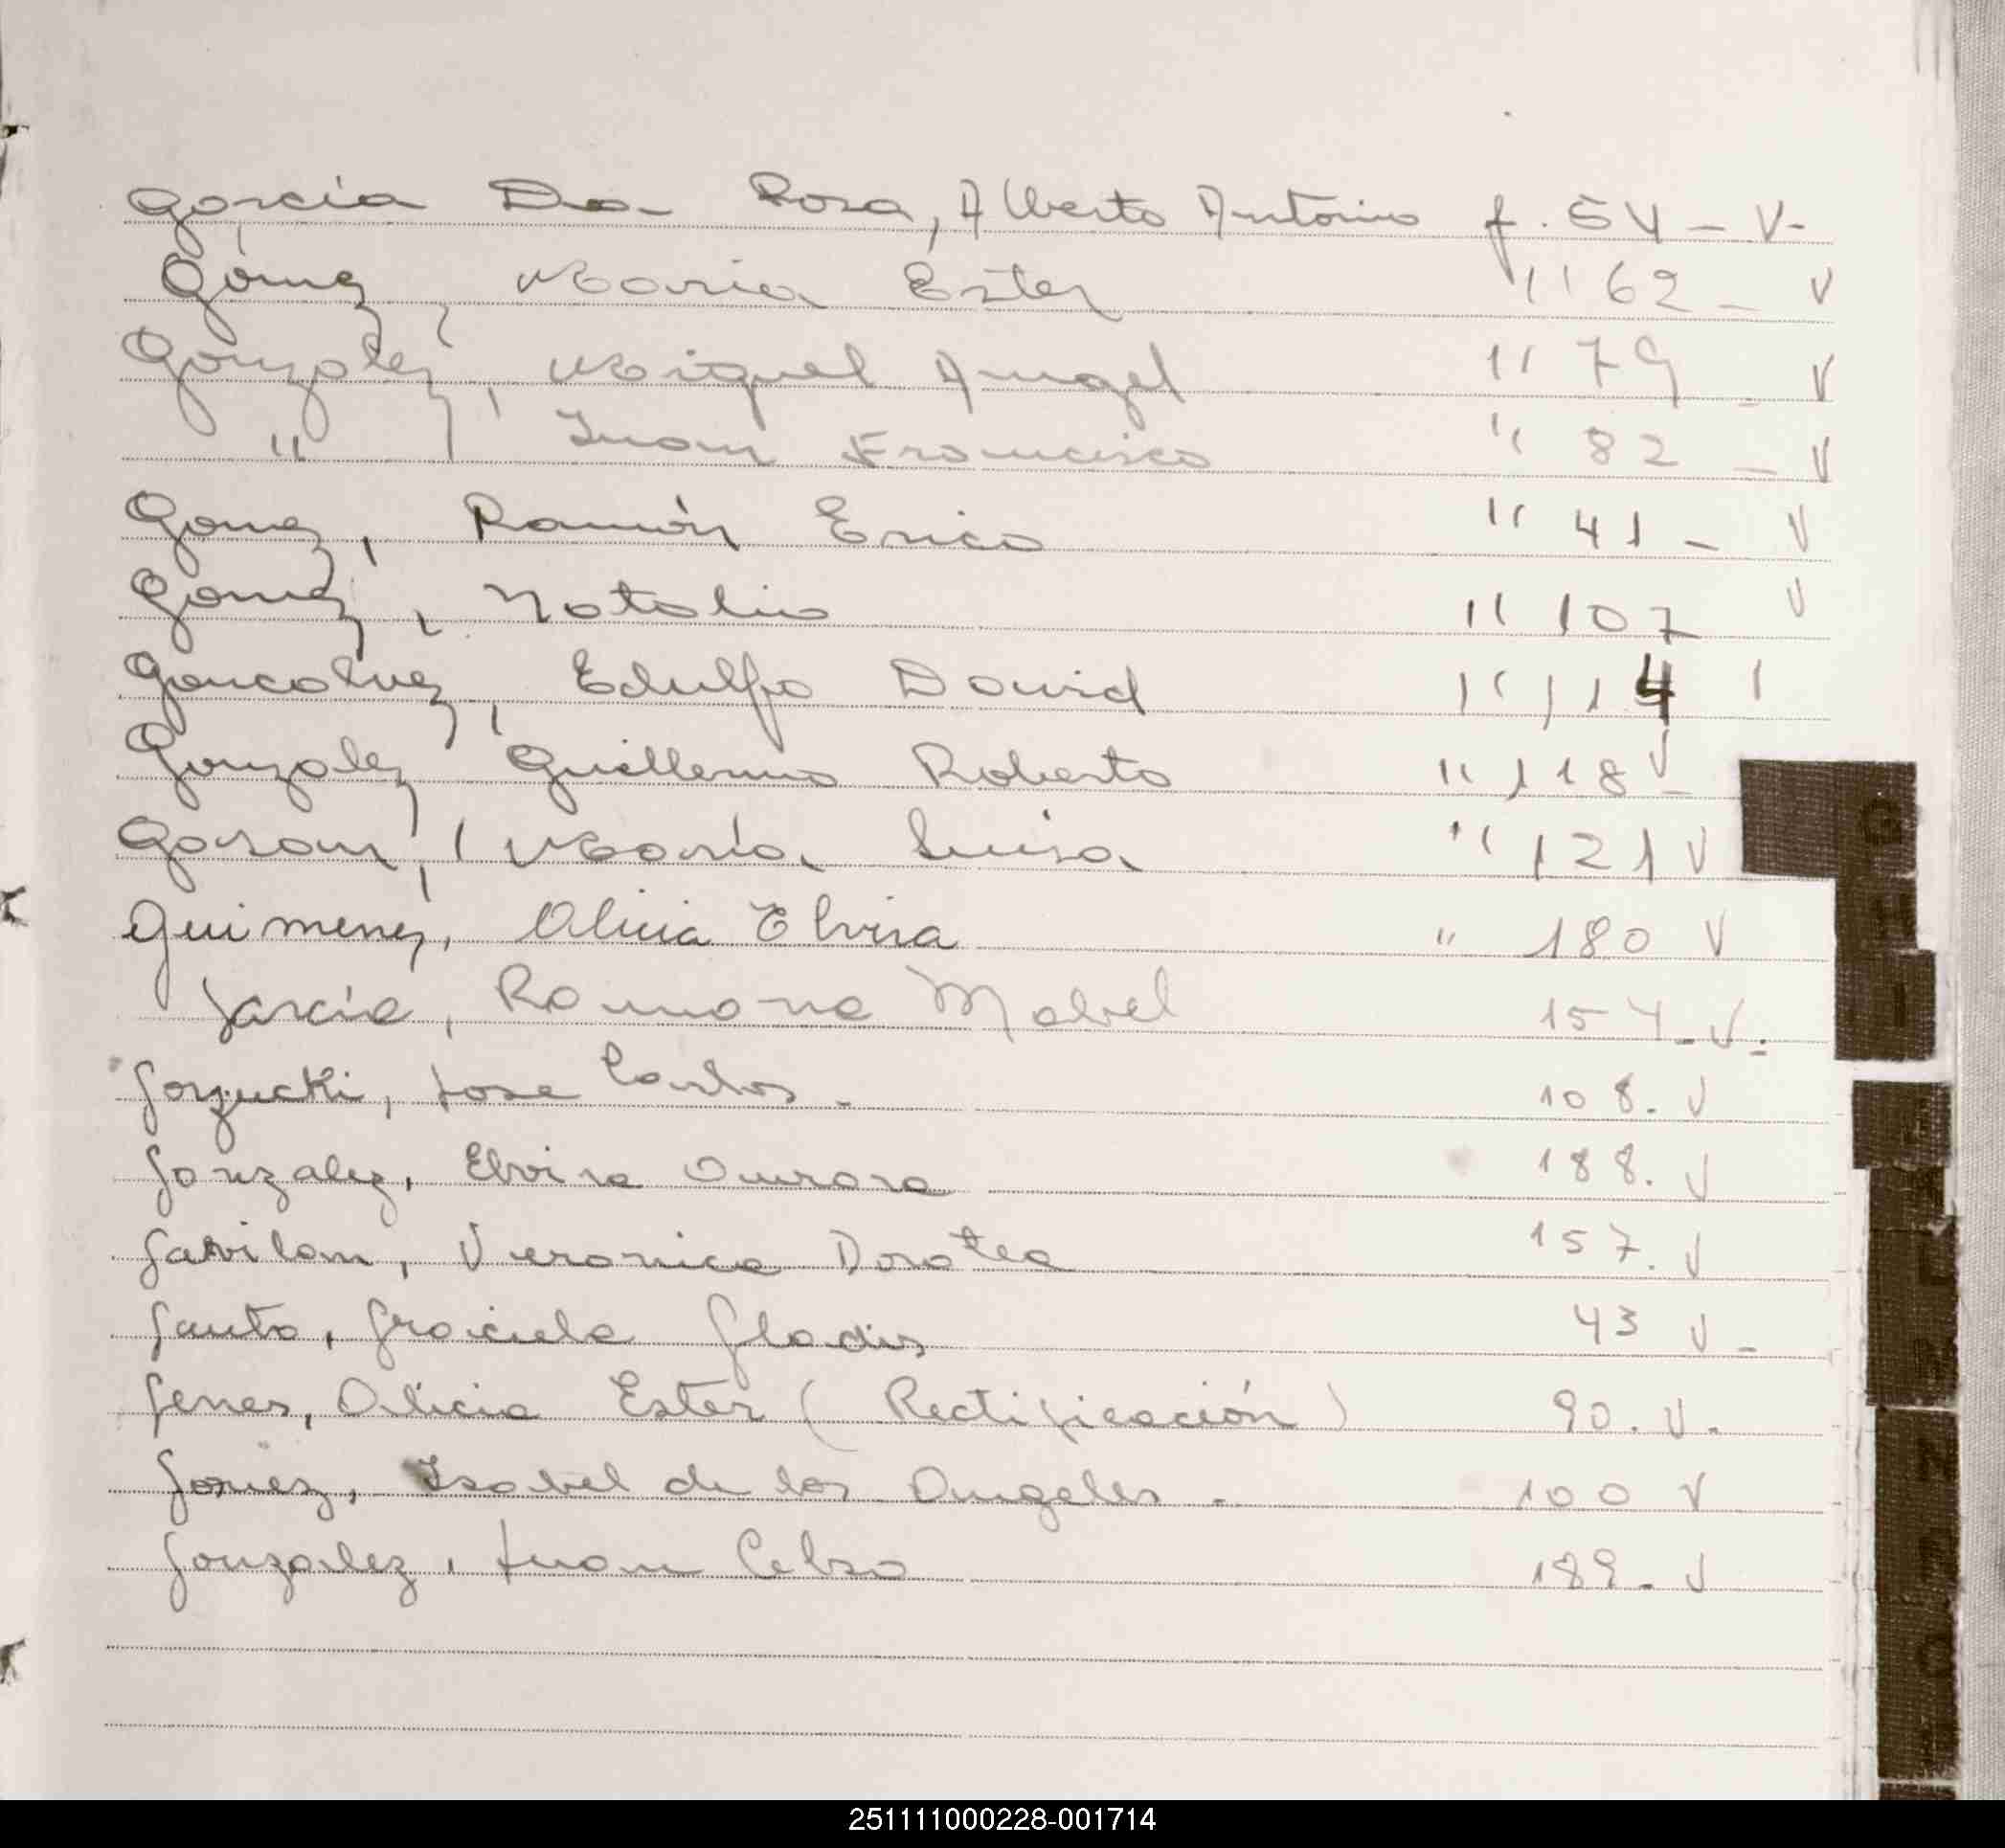 Garcia Da Rosa, Alberto Antonio f. 54 - V-
Gómez, Maria Ester " 62 - V
Gonzalez, Miguel Angel " 79 - V
" Juan Francisco " 82 - V
Gomez, Ramón Erico " 41 - V
Gomez, Natalio " 107 V
Goncalvez, Edulfo David " 114 1
Gonzalez Guillermo Roberto " 118 V -
Garay, María Luisa " 121 V
Guimenez, Alicia Elvira " 180 V
García, Ramona Mabel 154 - V.
Gorzucki, Jose Carlos. 108. V
Gonzalez, Elvira Aurora 188. V
Gavilan, Veronica Dorotea 157. V
Gauto, Graciela Gladis 43 V -
Genes, Alicia Ester (Rectificación) 90. V.
Gomez, Isabel de los Angeles. 100 V
Gonzalez, Juan Celso 189 - V
G
H
I
251111000228-001714